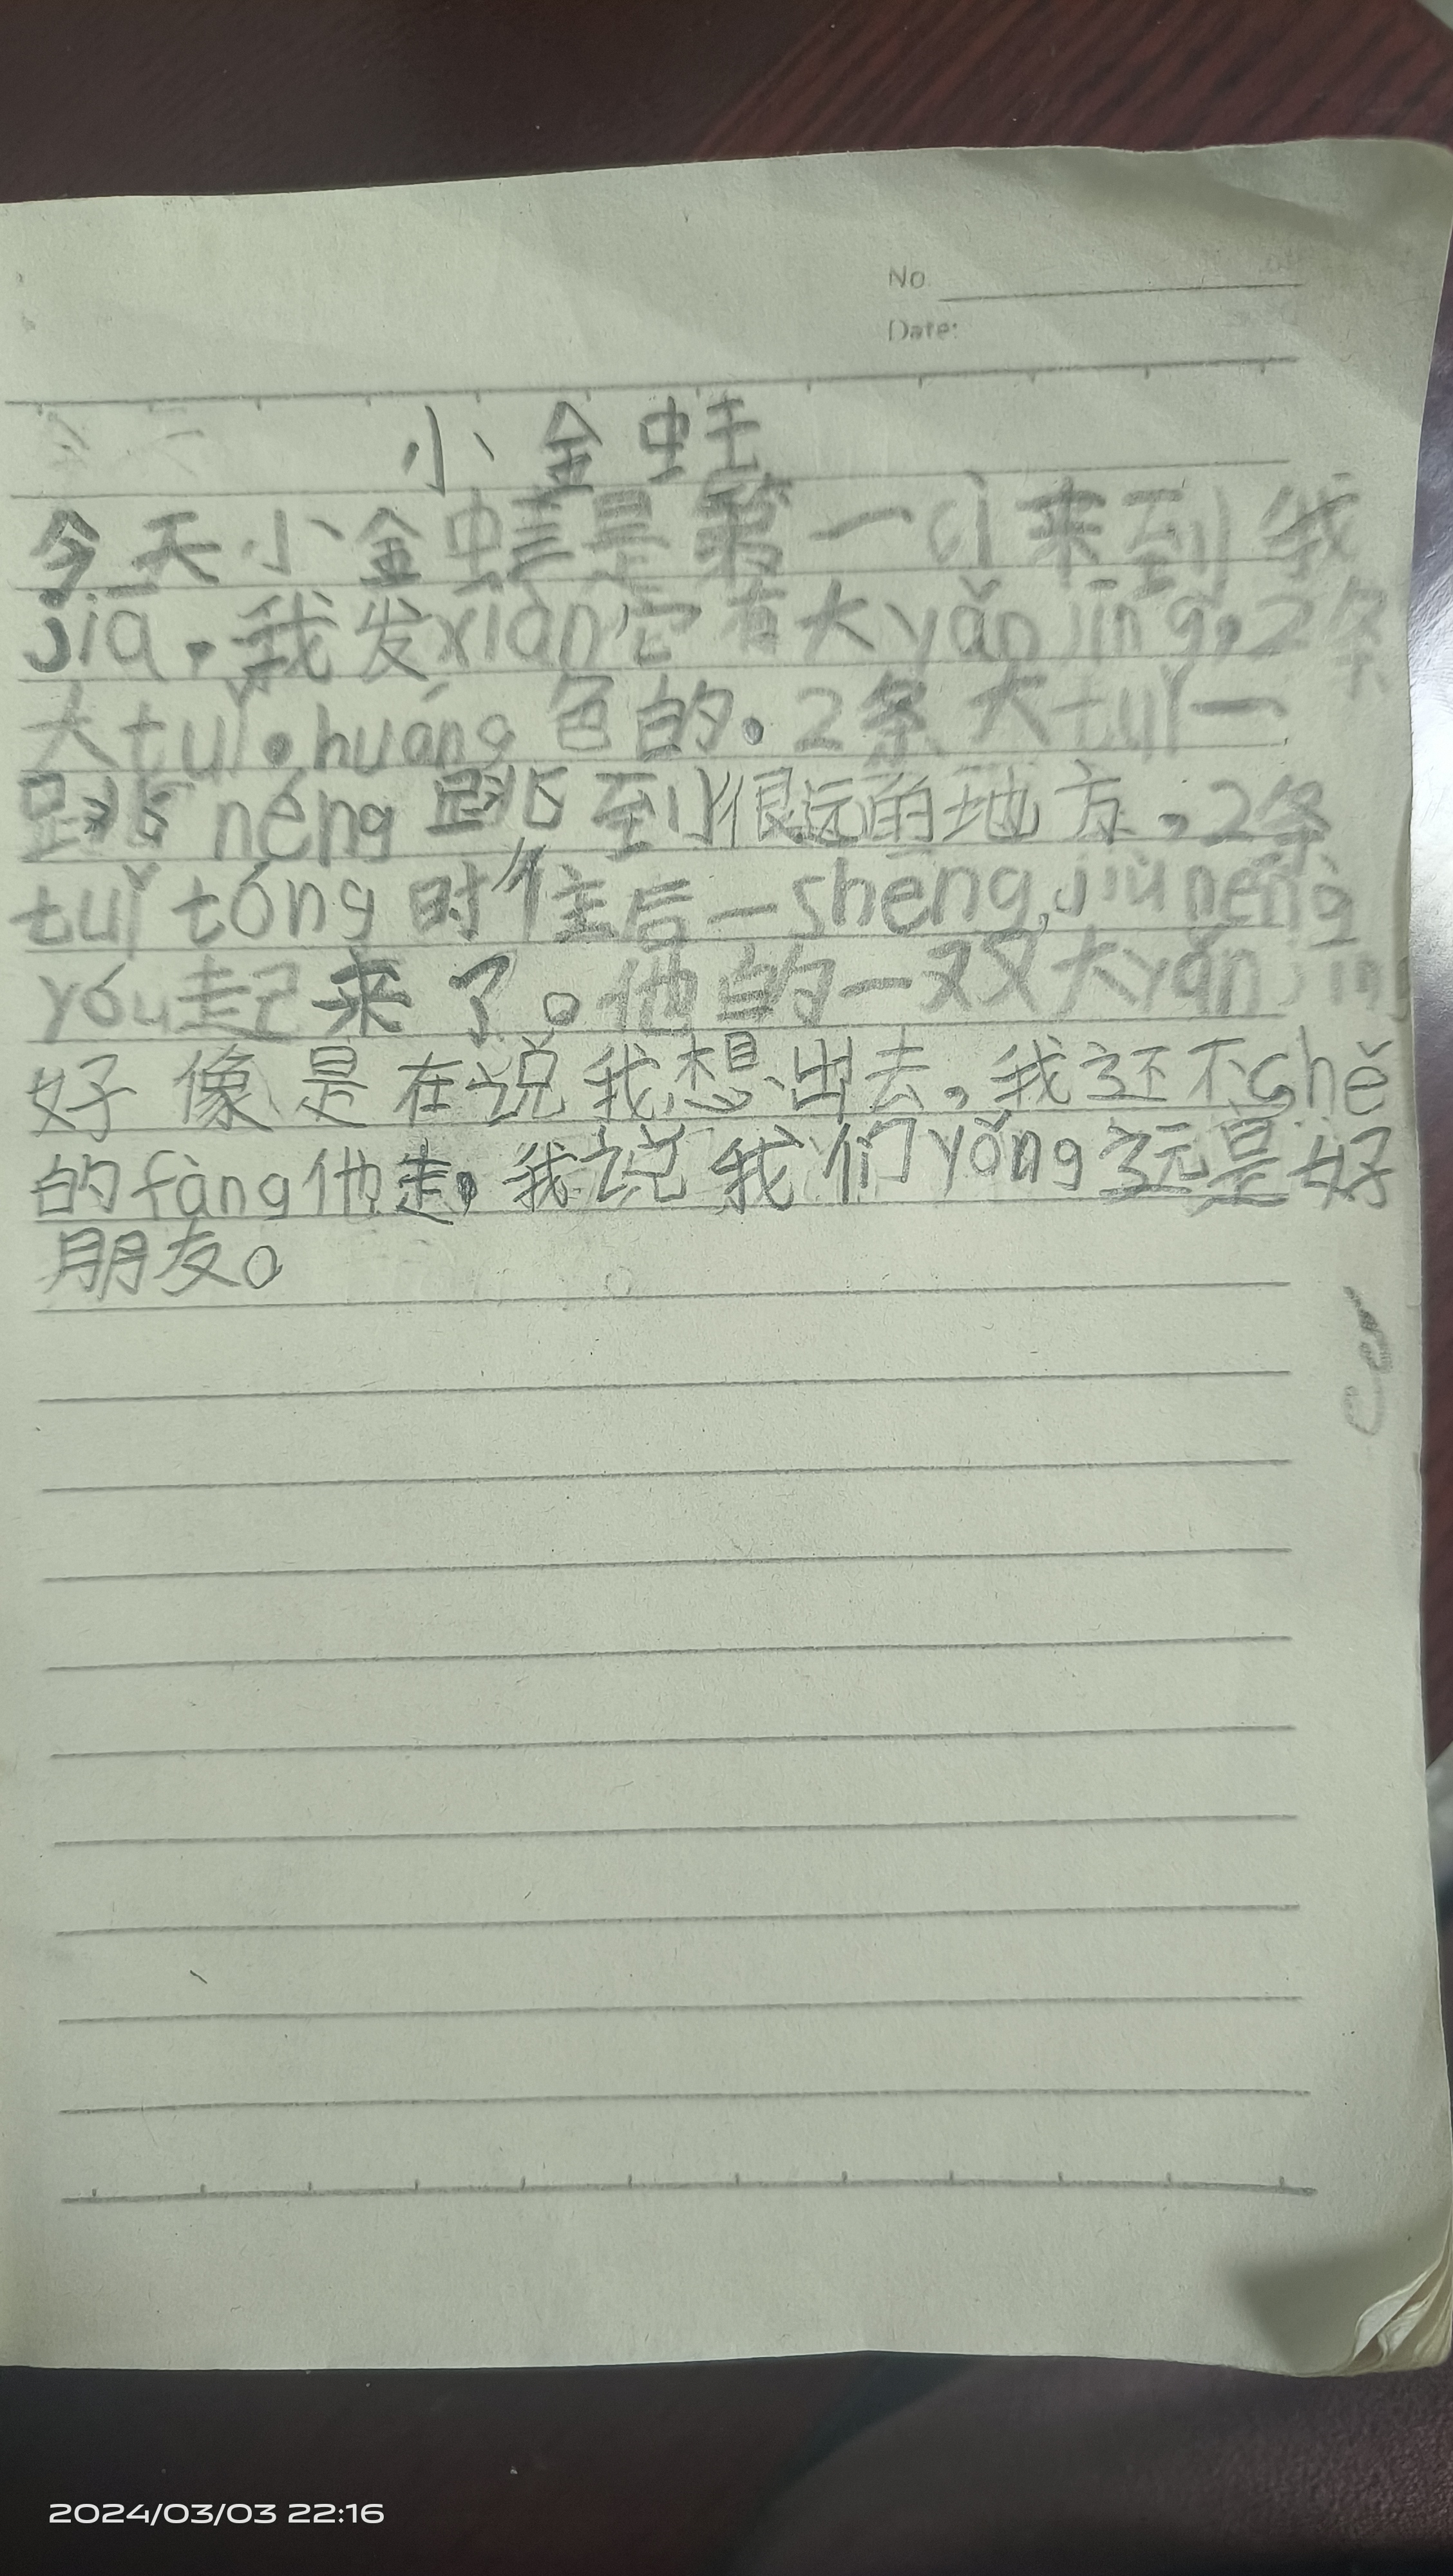 No
Date:
小金蛙
今天小金蛙是第一cì来到我
jiā,我发xiàn它有大yǎn jīng,2条
大tuǐ。huáng色的。2条大tuǐ一
跳néng跳到很远的地方,2条
tuǐ tóng时往后一shēng,jiù néng
yóu起来了。他的一双大yǎn jīng
好像是在说我想出去,我还不shě
的fàng他走,我说我们yǒng远是好
朋友。
2024/03/03 22:16